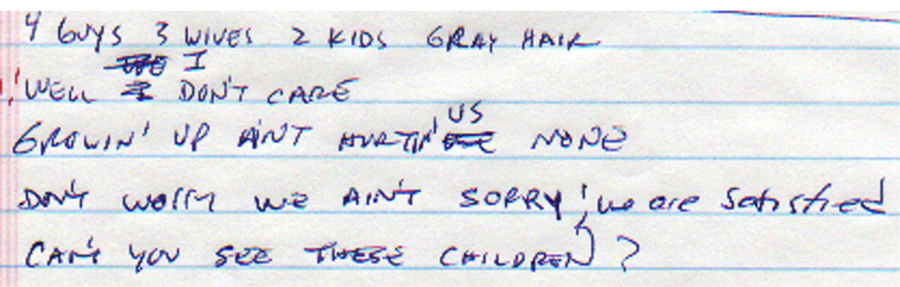 4 GUYS 3 WIVES 2 KIDS GRAY HAIR
WE I
WELL I DON'T CARE
GROWIN' UP AIN'T HURTIN' US NONE
DON'T WORRY WE AIN'T SORRY! we are satisfied
CAN'T YOU SEE THESE CHILDREN?